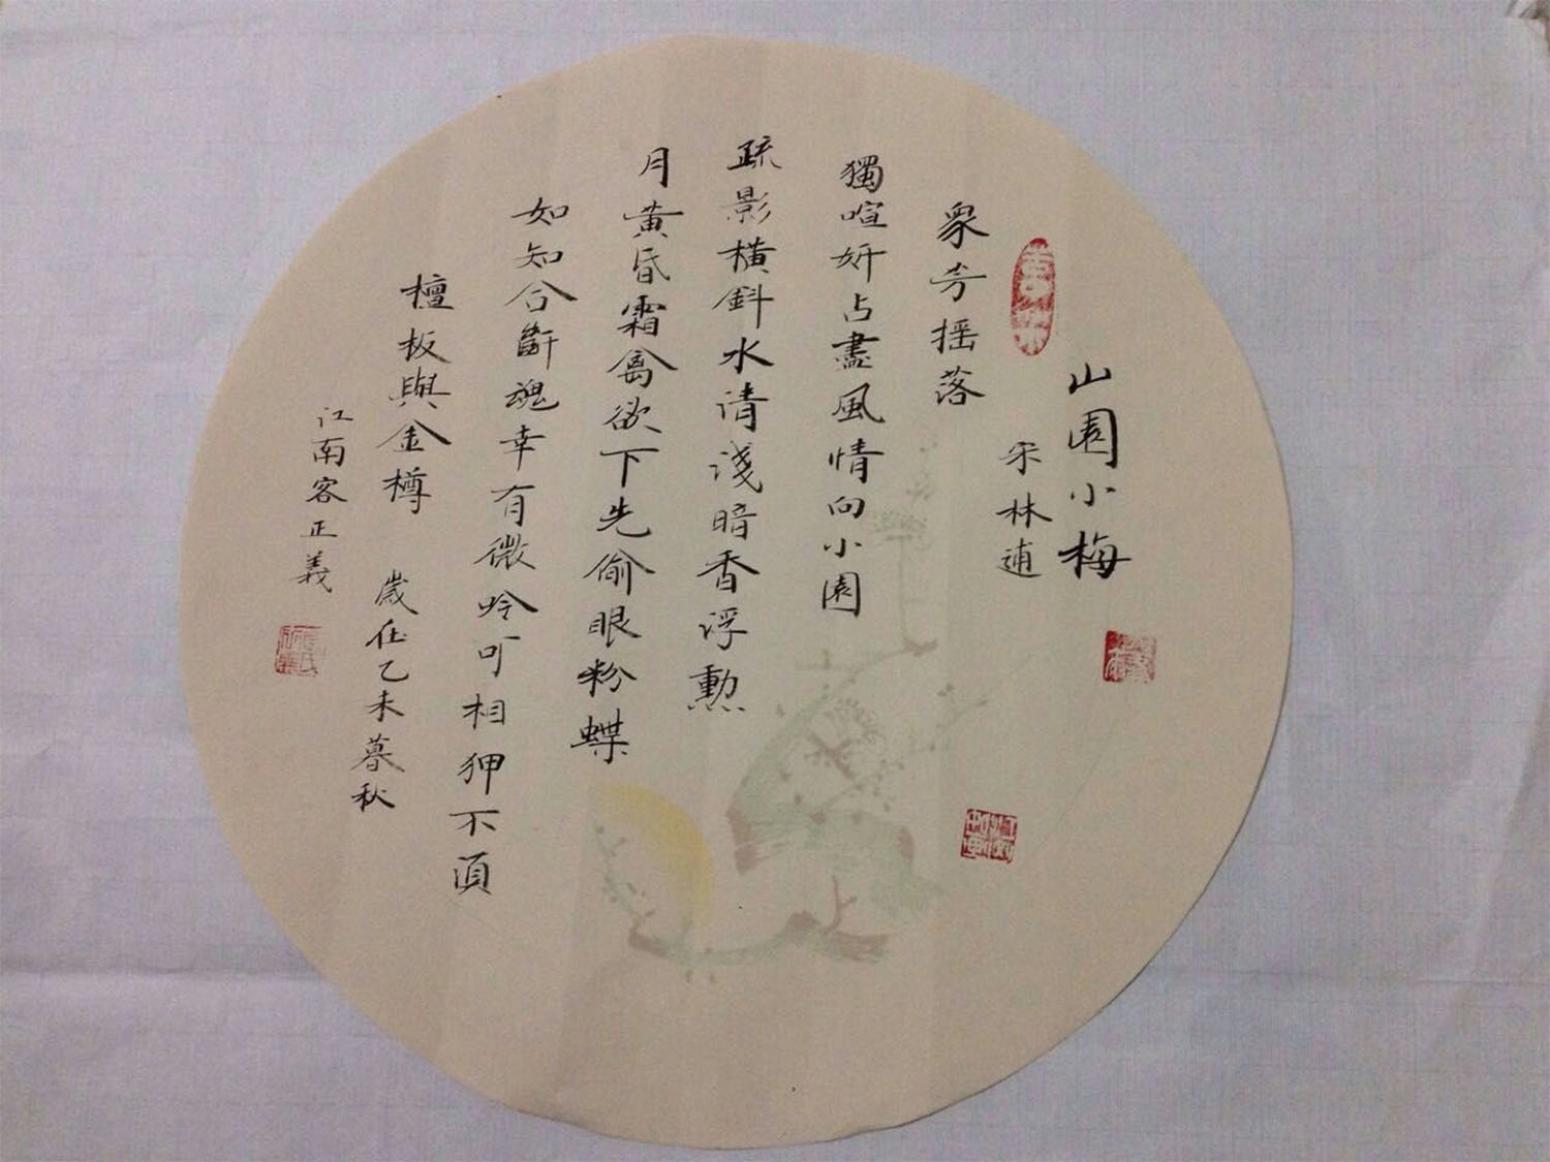 山園小梅
宋林逋
眾芳摇落
獨喧妍占盡風情向小園
疏影橫斜水清淺暗香浮動
月黄昏霜禽欲下先偷眼粉蝶
如知合斷魂幸有微吟可相狎不須
檀板與金樽
歲在乙未暮秋
江南客正義